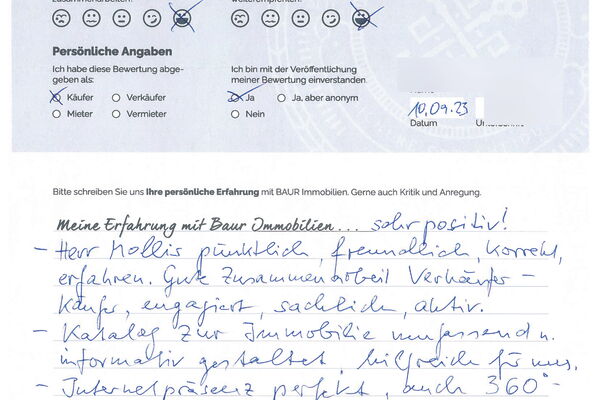 zusammenarbeiten.
weiterempfehlen.
Persönliche Angaben
Ich habe diese Bewertung abge-
geben als:
Käufer Verkäufer
Mieter Vermieter
Ich bin mit der Veröffentlichung
meiner Bewertung einverstanden.
Ja Ja, aber anonym
Nein
10.09.23
Datum
Bitte schreiben Sie uns Ihre persönliche Erfahrung mit BAUR Immobilien. Gerne auch Kritik und Anregung.
Meine Erfahrung mit Baur Immobilien... sehr positiv!
- Herr Mollis pünktlich, freundlich, korrekt,
erfahren. Gute Zusammenarbeit Verkäufer -
Käufer, engagiert, sachlich, aktiv.
- Katalog zur Immobilie umfassend u.
informativ gestaltet, hilfreich für uns.
- Internetpräsenz perfekt, auch 360°-